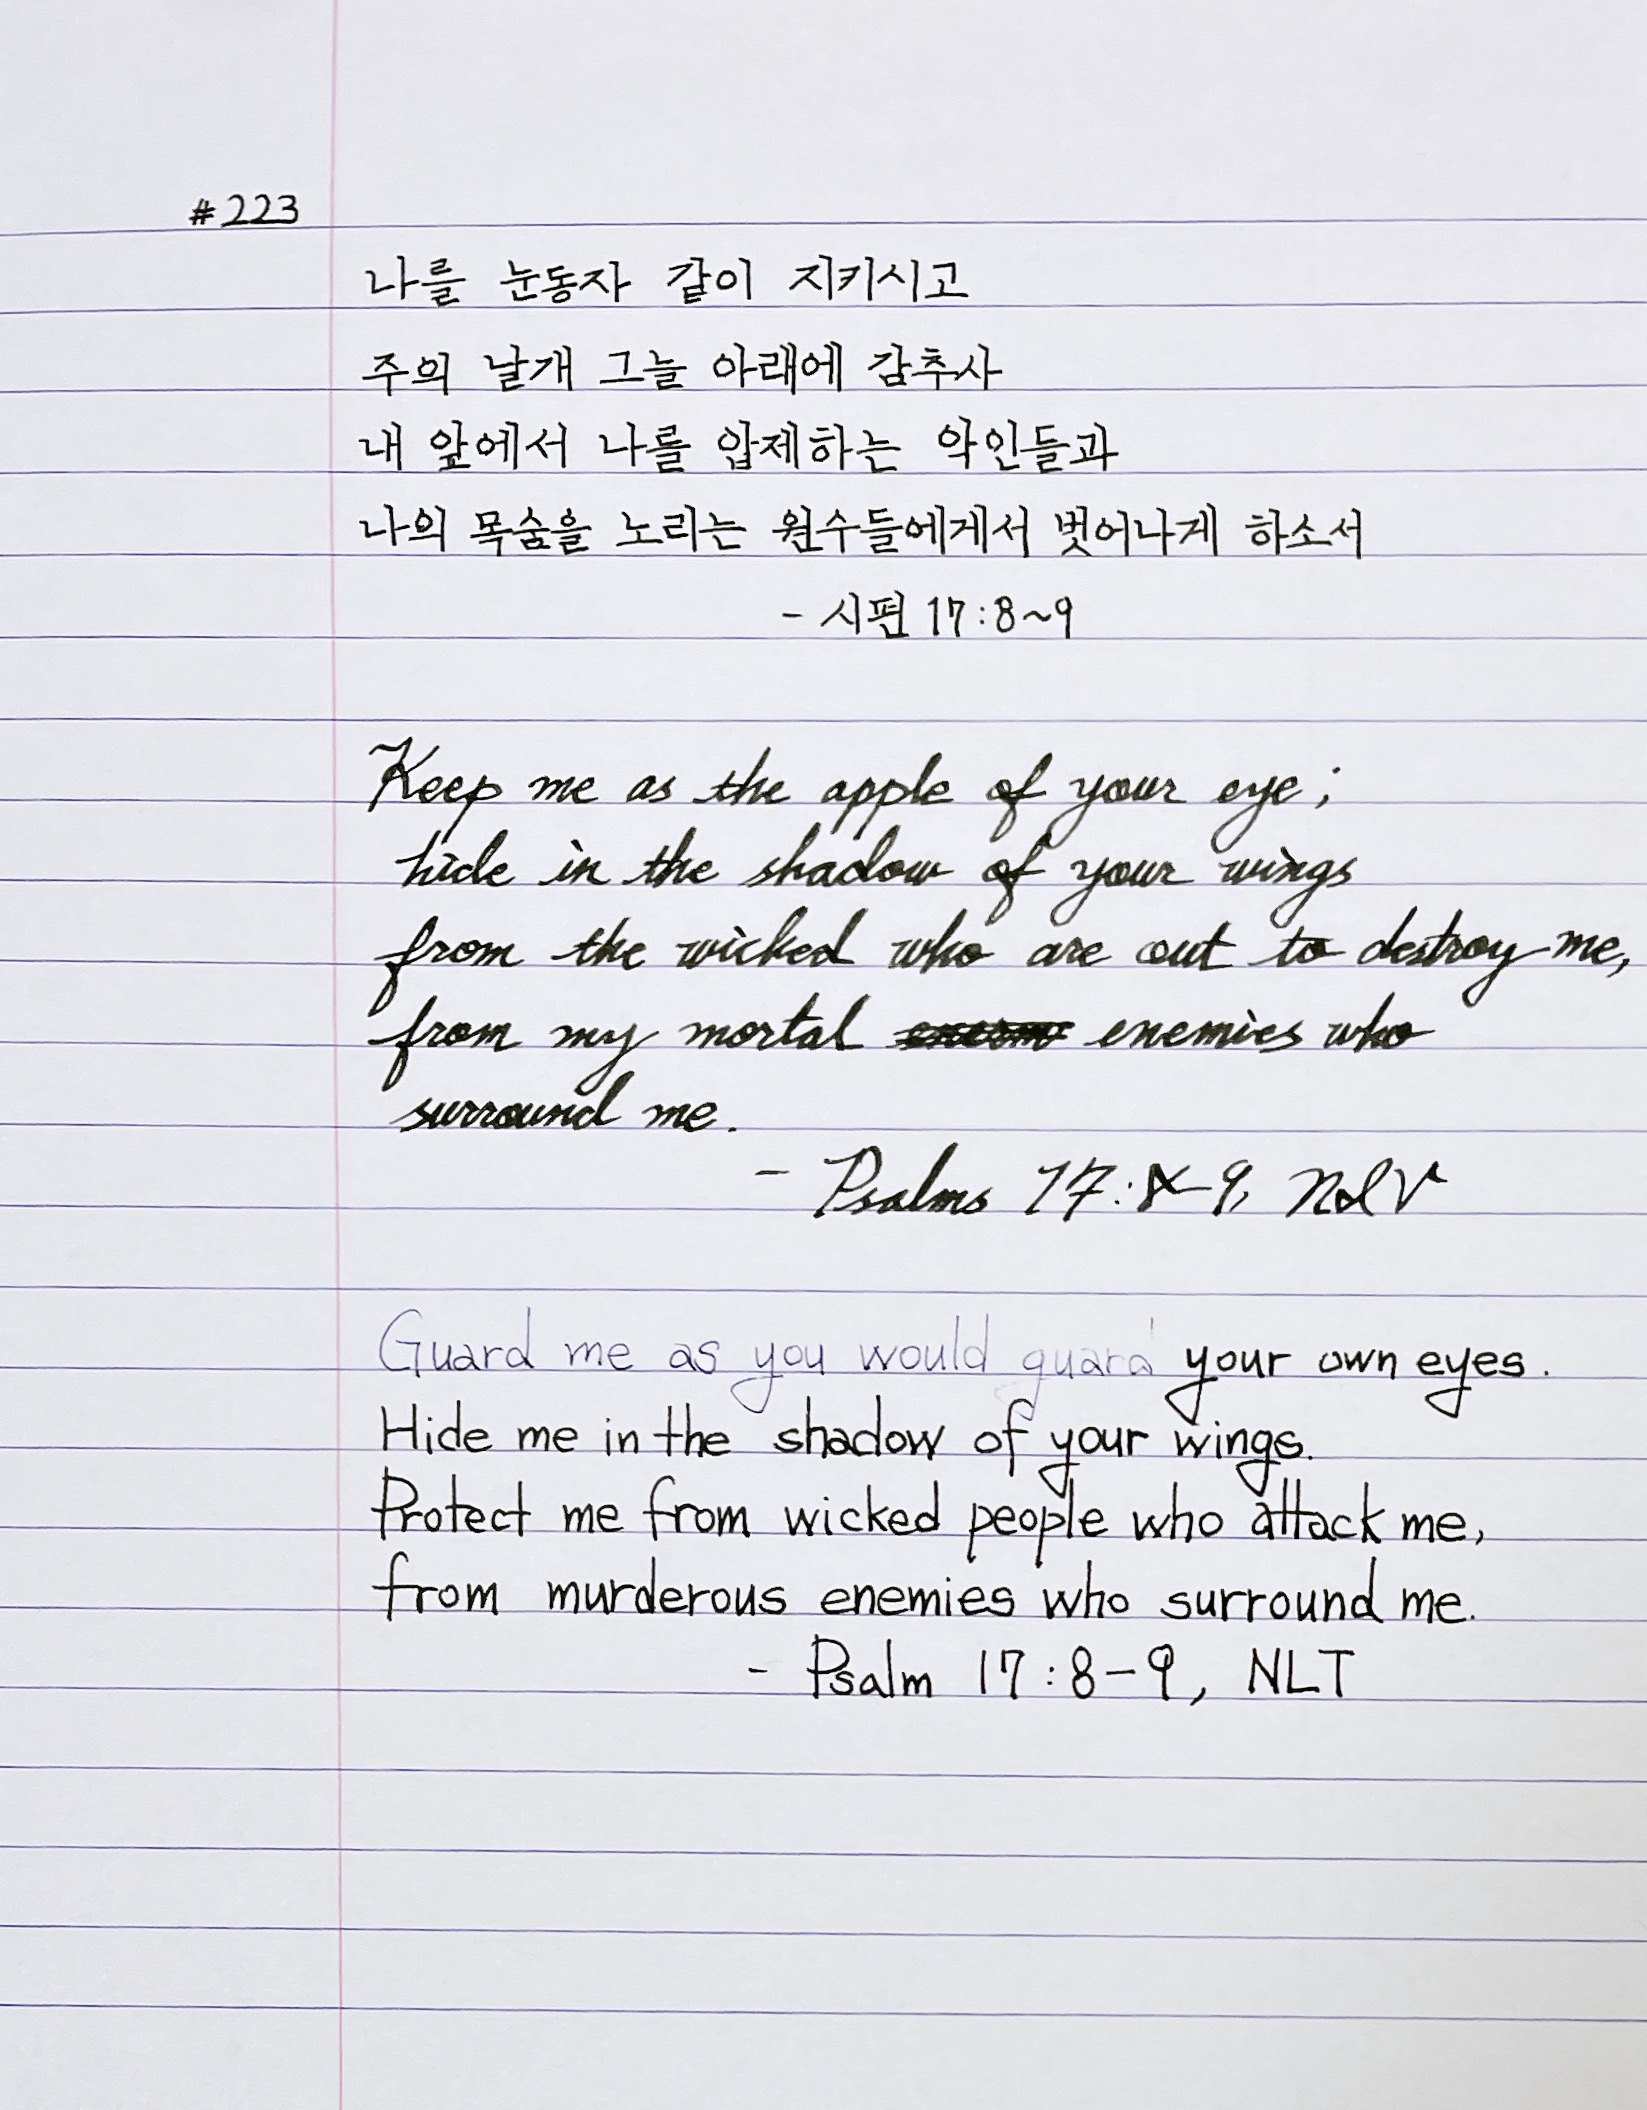 #223
나를 눈동자 같이 지키시고
주의 날개 그늘 아래에 감추사
내 앞에서 나를 압제하는 악인들과
나의 목숨을 노리는 원수들에게서 벗어나게 하소서
- 시편 17:8~9
Keep me as the apple of your eye;
hide in the shadow of your wings
from the wicked who are out to destroy me,
from my mortal enemies who
surround me.
- Psalms 17:8-9, NIV
Guard me as you would guard your own eyes.
Hide me in the shadow of your wings.
Protect me from wicked people who attack me,
from murderous enemies who surround me.
- Psalm 17:8-9, NLT